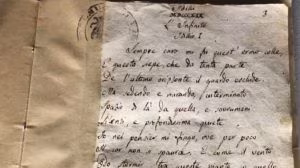 Idilli
MDCCCXIX
3
L'Infinito
Idillio I
Sempre caro mi fu quest'ermo colle,
E questa siepe, che da tanta parte
De l'ultimo orizzonte il guardo esclude
Ma sedendo e mirando, interminato
Spazio di là da quella, e sovrumani
Silenzi, e profondissima quiete
Io nel pensier mi fingo, ove per poco
Il cor non si spaura. E come il vento
Odo stormir tra queste piante, io quello